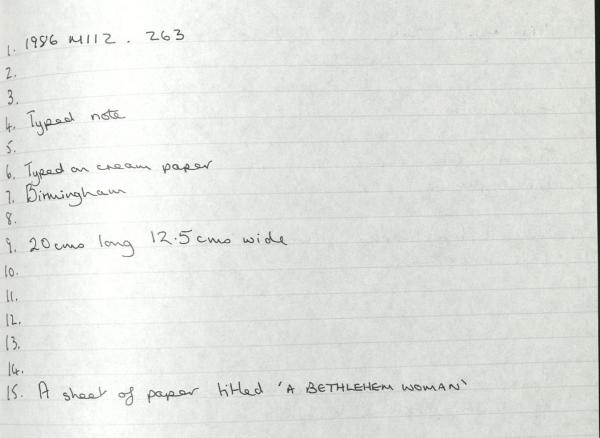 1. 1986 M112 . 263
2.
3.
4. Typed note
5.
6. Typed on cream paper
7. Birmingham
8.
9. 20cms long 12.5cms wide
10.
11.
12.
13.
14.
15. A sheet of paper titled 'A BETHLEHEM WOMAN'